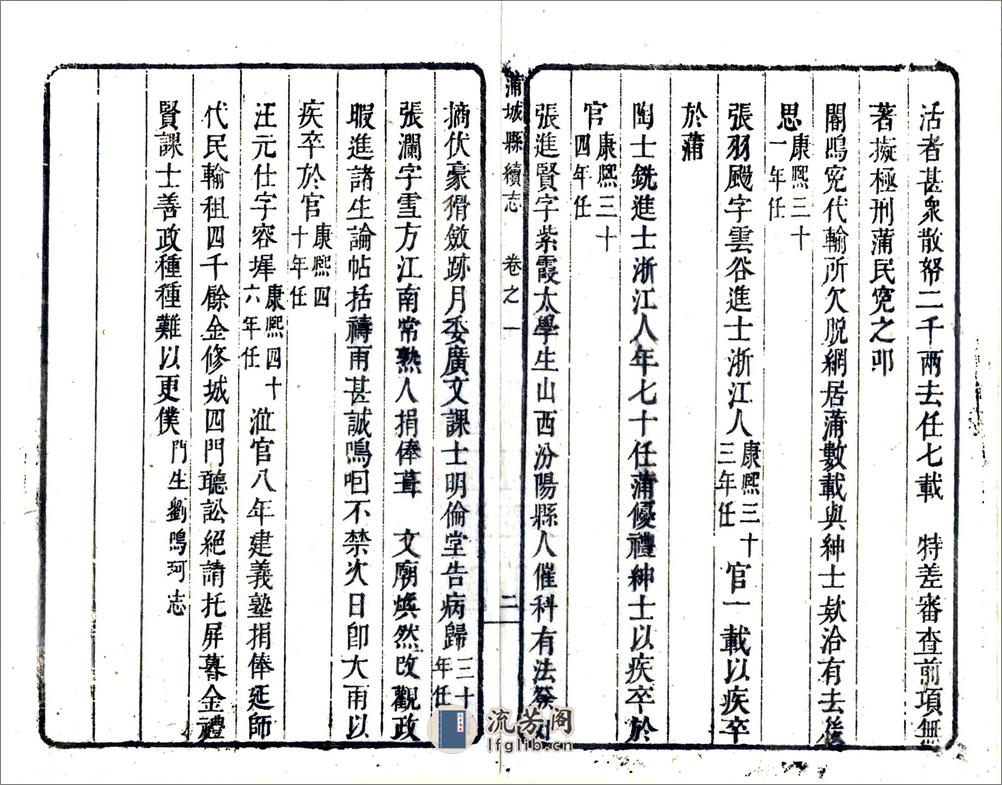 活者甚衆散帑二千兩去任七載　特差審查前項無
著擬極刑蒲民寃之叩
閽鳴寃代輸所欠脱網居蒲數載與紳士欵洽有去後
思康熙三十一年任
張羽颺字雲谷進士浙江人康熙三十三年任官一載以疾卒
於蒲
陶士銑進士浙江人年七十任蒲優禮紳士以疾卒於
官康熙三十四年任
張進賢字紫霞太學生山西汾陽縣人催科有法發
蒲城縣續志　卷之一　二
摘伏豪猾斂跡月委廣文課士明倫堂告病歸三十年任
張瀾字雪方江南常熟人捐俸葺　文廟煥然改觀政
暇進諸生論帖括禱雨甚誠鳴咽不禁次日卽大雨以
疾卒於官康熙四十年任
汪元仕字容墀康熙四十六年任涖官八年建義塾捐俸延師
代民輸租四千餘金修城四門聽訟絕請托屏暮金禮
賢課士善政種種難以更僕門生劉鳴珂志
流芳阁
lfglib.cn